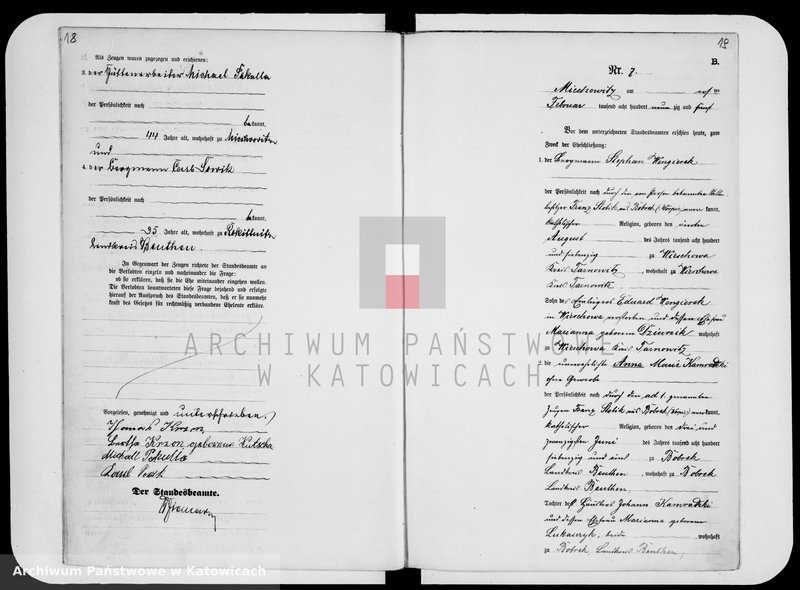 18
Als Zeugen waren zugezogen und erschienen:
3. der Hüttenarbeiter Michael Pakulla
der Persönlichkeit nach
bekannt,
44 Jahre alt, wohnhaft zu Miechowitz
und
4. der Bergmann Carl
der Persönlichkeit nach
bekannt,
35 Jahre alt, wohnhaft zu Rokittnitz
Landkreis Beuthen.
In Gegenwart der Zeugen richtete der Standesbeamte an
die Verlobten einzeln und nacheinander die Frage:
ob sie erklären, daß sie die Ehe miteinander eingehen wollen.
Die Verlobten beantworteten diese Frage bejahend und erfolgte
hierauf der Ausspruch des Standesbeamten, daß er sie nunmehr
kraft des Gesetzes für rechtmäßig verbundene Eheleute erkläre.
Vorgelesen, genehmigt und unterschrieben.
Thomas Krzon
Bertha Krzon geborene
Michall Pakulla
Der Standesbeamte.
19
B.
Nr. 7.
Miechowitz am ten
Februar tausend acht hundert neun zig und fünf
Vor dem unterzeichneten Standesbeamten erschien heute, zum
Zweck der Eheschließung:
1. der Bergmann Stephan Wengierek
der Persönlichkeit nach durch den von Person bekannten
besitzer Franz Slotik aus Bobrek kannt,
katholischer Religion, geboren den
August des Jahres tausend acht hundert
und siebenzig zu Wieschowa
Kreis Tarnowitz, wohnhaft zu Wieschowa
Kreis Tarnowitz
Sohn des Eduard Wengierek
in Wieschowa verstorben und dessen Ehefrau
Marianna geborenen wohnhaft
zu Wieschowa Kreis Tarnowitz
2. die unverehelichte Anna Marie Kamradzki
ohne Gewerbe
der Persönlichkeit nach durch den ad 1. genannten
Zeugen Franz Slotik aus Bobrek kannt,
katholischer Religion, geboren den drei und
zwanzigsten Juni des Jahres tausend acht hundert
siebenzig und eins zu Bobrek
Landkreis Beuthen, wohnhaft zu Bobrek
Landkreis Beuthen,
Tochter des Häuslers Johann Kamradzki
und dessen Ehefrau Marianna geborenen
Lukaszczyk, beide wohnhaft
zu Bobrek, Landkreis Beuthen,
ARCHIWUM PAŃSTWOWE
W KATOWICACH
Archiwum Państwowe w Katowicach